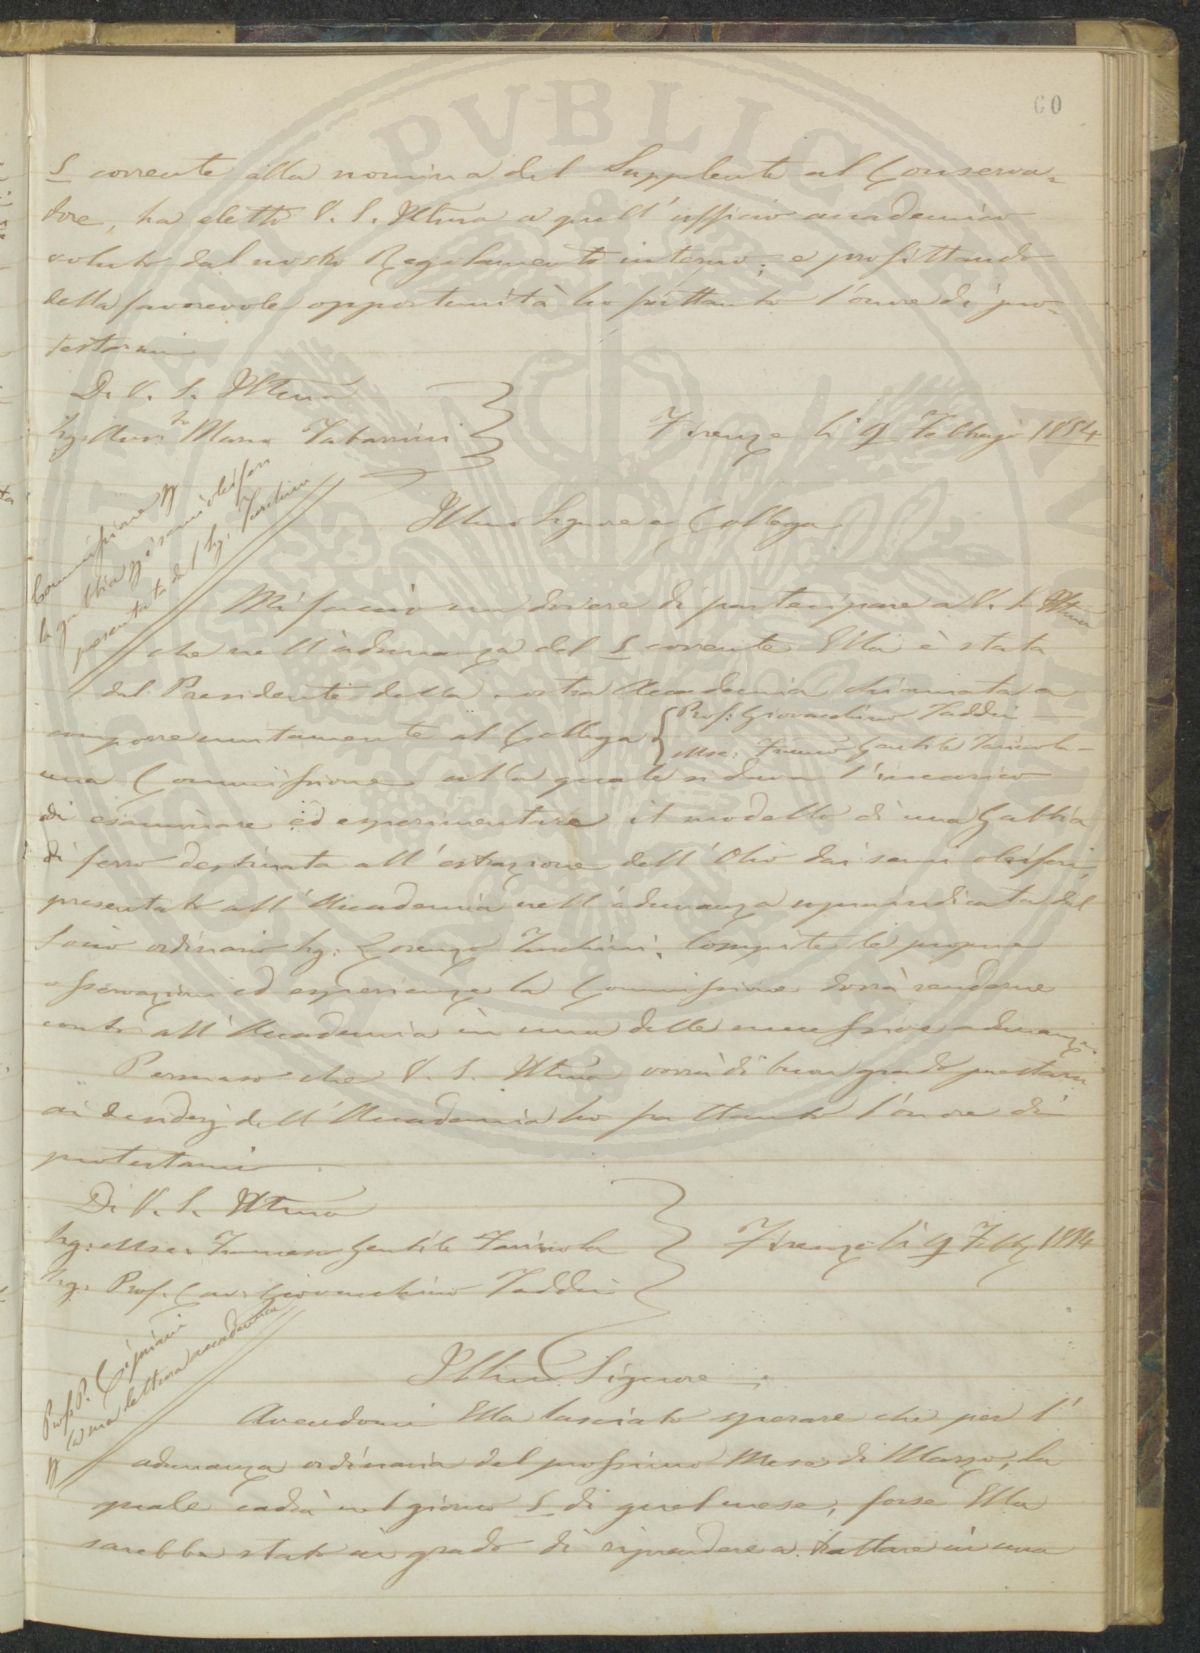 60
5 corrente alla nomina del Supplente al Conserva=
tore, ha eletto V. S. Illma a quell'ufficio accademico
voluto dal nostro Regolamento interno; e profittando
della favorevole opportunità ho frattanto l'onore di pro-
testarmi
Di V. S. Illma
Sig. Avv.to Marco Tabarrini
Firenze li 9 Febbrajo 1854
Commissione pp
la gabbia pp i semi oleiferi
presentata dal Sig. Turchini
Illmo Signore e Collega
Mi faccio un dovere di partecipare a V. S. Illma
che nell'adunanza del 5 corrente Ella è stata
dal Presidente della nostra Accademia chiamata a
comporre unitamente al Collega
Prof: Giovacchino Taddei
Mse: Franco Gentile Farinola
una Commissione alla quale si dava l'incarico
di esaminare ed esperimentare il modello di una Gabbia
di ferro destinata all'estrazione dell'Olio dai semi oleiferi,
presentato all'Accademia nell'adunanza sopraindicata dal
Socio ordinario Sig: Lorenzo Turchini. Compite le proprie
osservazioni ed esperienze la Commissione dovrà renderne
conto all'Accademia in una delle successive adunanze.
Persuaso che V. S. Illma vorrà di buon grado prestarsi
ai desiderj dell'Accademia ho frattanto l'onore di
protestarmi
Di V. S. Illma
Sig: Mse. Francesco Gentile Farinola
Sig. Prof. Cav. Giovacchino Taddei
Firenze li 9 Febb. 1854
Prof. P. Cipriani
pp una lettura accademica
Illmo Signore
Avendomi Ella lasciato sperare che per l'
adunanza ordinaria del prossimo Mese di Marzo, la
quale cadrà nel giorno 5 di quel mese, forse Ella
sarebbe stato in grado di riprendere a trattare in una
PVBLIC